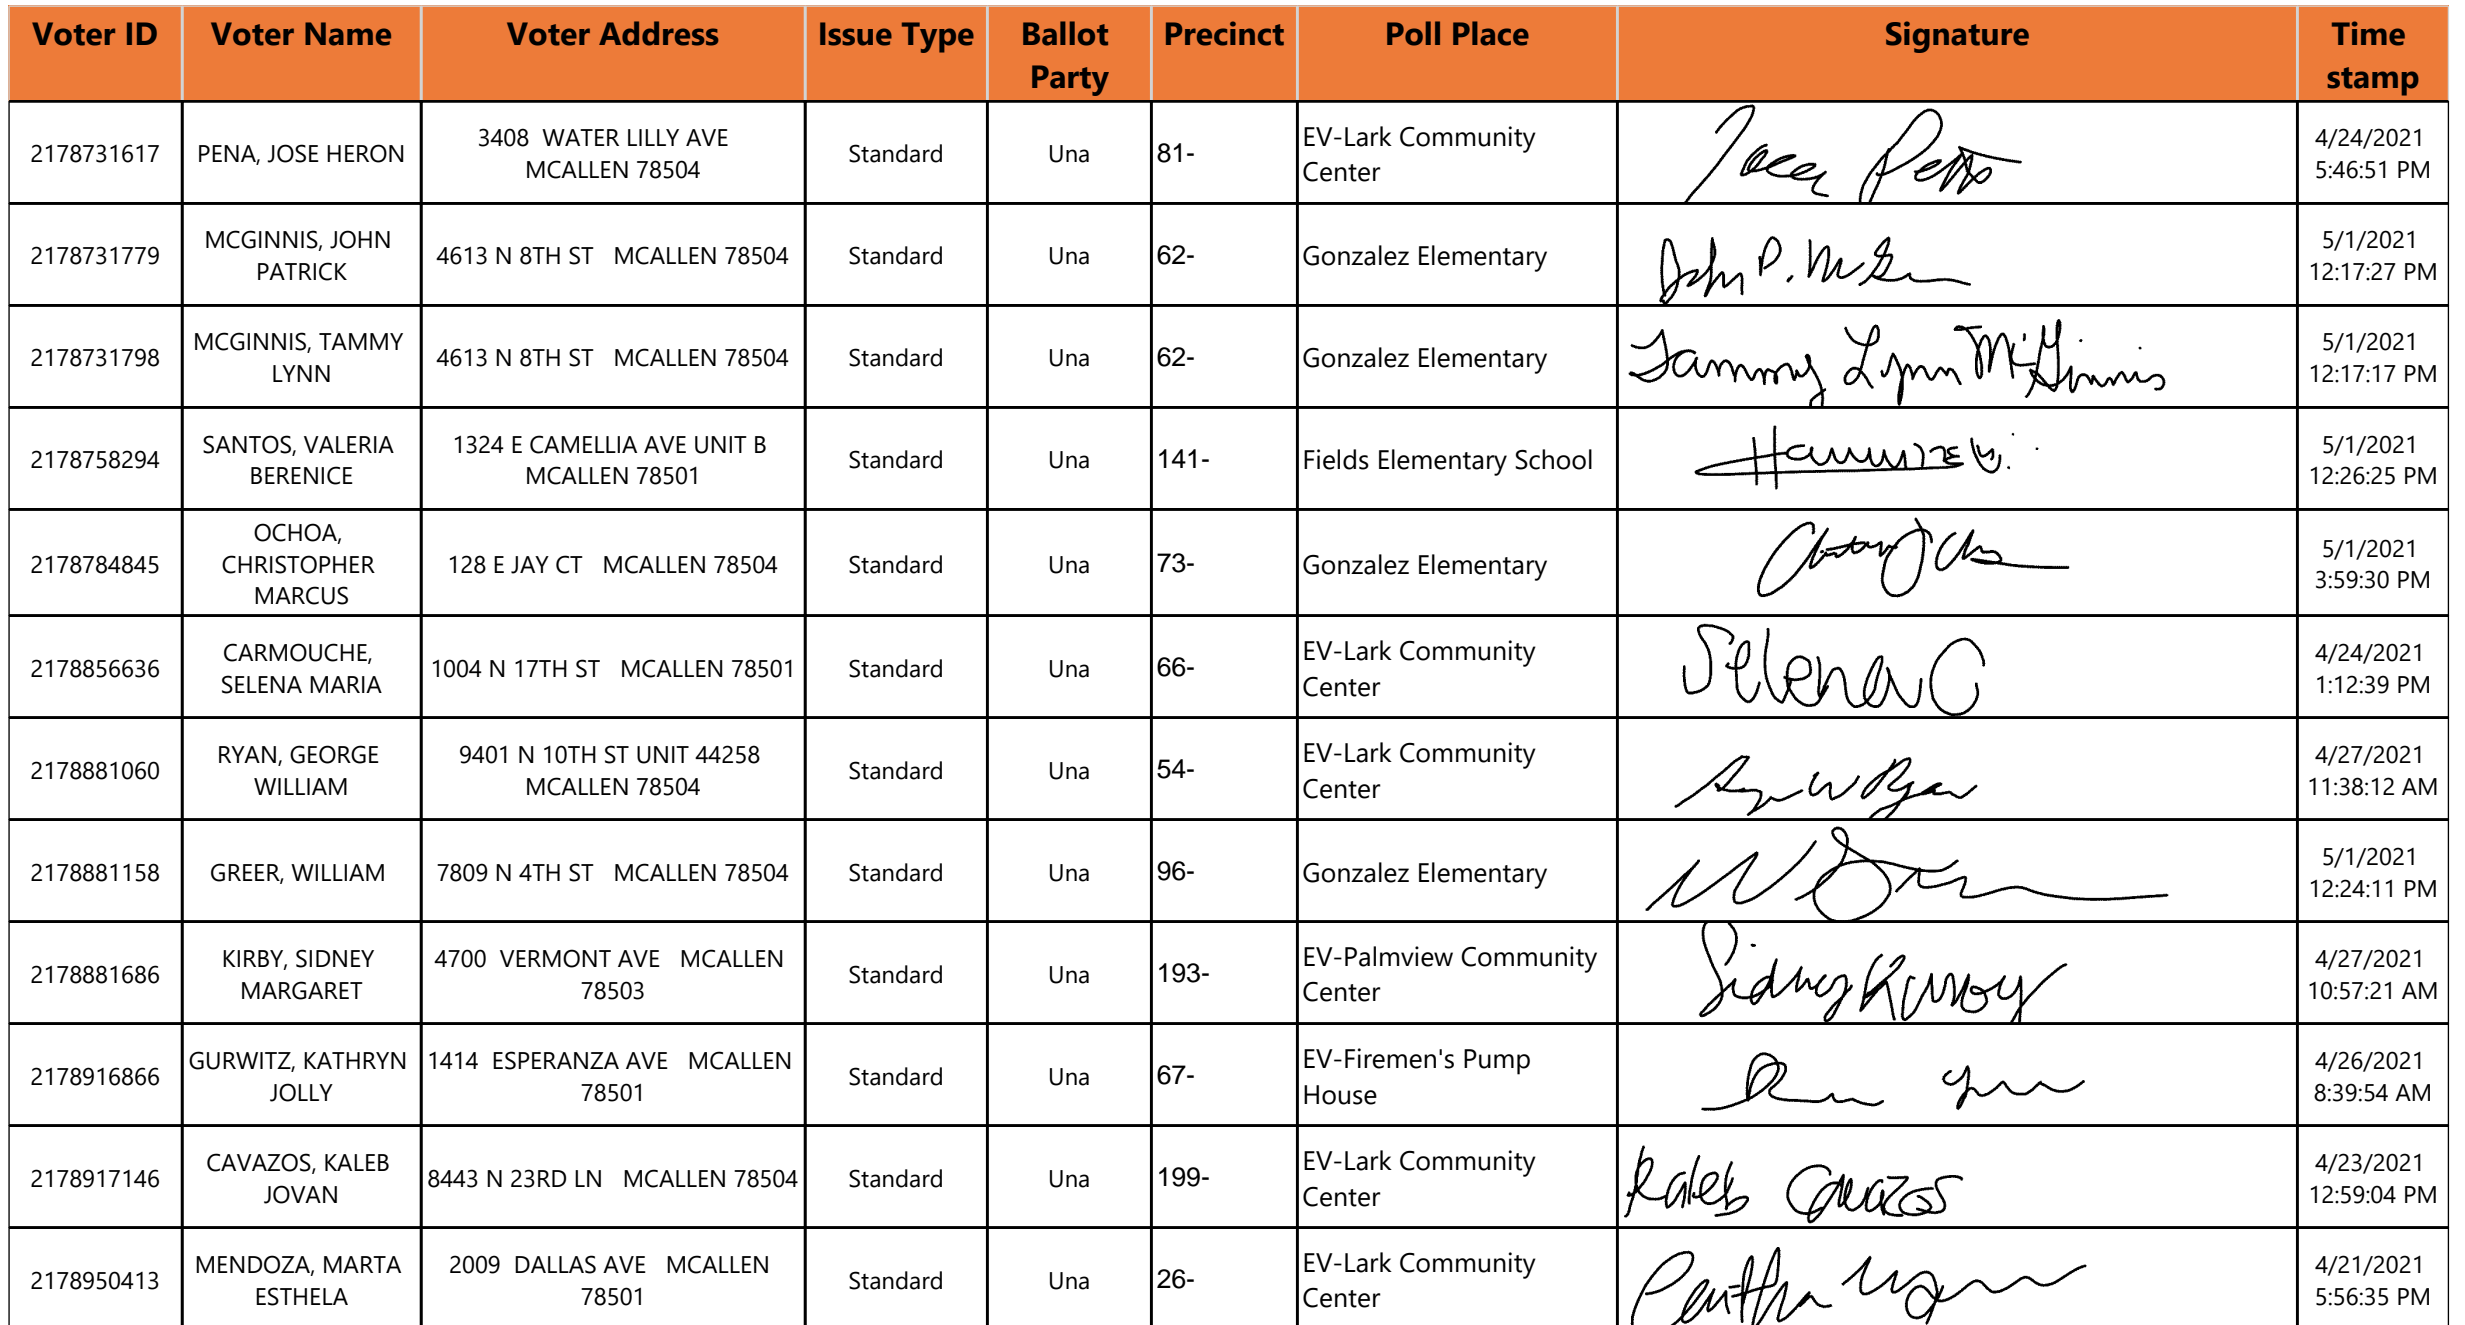 Voter ID Voter Name Voter Address Issue Type Ballot Party Precinct Poll Place Signature Time stamp
2178731617 PENA, JOSE HERON 3408 WATER LILLY AVE MCALLEN 78504 Standard Una 81- EV-Lark Community Center 4/24/2021 5:46:51 PM
2178731779 MCGINNIS, JOHN PATRICK 4613 N 8TH ST MCALLEN 78504 Standard Una 62- Gonzalez Elementary John P. 5/1/2021 12:17:27 PM
2178731798 MCGINNIS, TAMMY LYNN 4613 N 8TH ST MCALLEN 78504 Standard Una 62- Gonzalez Elementary Tammy Lynn McGinnis 5/1/2021 12:17:17 PM
2178758294 SANTOS, VALERIA BERENICE 1324 E CAMELLIA AVE UNIT B MCALLEN 78501 Standard Una 141- Fields Elementary School 5/1/2021 12:26:25 PM
2178784845 OCHOA, CHRISTOPHER MARCUS 128 E JAY CT MCALLEN 78504 Standard Una 73- Gonzalez Elementary 5/1/2021 3:59:30 PM
2178856636 CARMOUCHE, SELENA MARIA 1004 N 17TH ST MCALLEN 78501 Standard Una 66- EV-Lark Community Center Selena C 4/24/2021 1:12:39 PM
2178881060 RYAN, GEORGE WILLIAM 9401 N 10TH ST UNIT 44258 MCALLEN 78504 Standard Una 54- EV-Lark Community Center W Ryan 4/27/2021 11:38:12 AM
2178881158 GREER, WILLIAM 7809 N 4TH ST MCALLEN 78504 Standard Una 96- Gonzalez Elementary 5/1/2021 12:24:11 PM
2178881686 KIRBY, SIDNEY MARGARET 4700 VERMONT AVE MCALLEN 78503 Standard Una 193- EV-Palmview Community Center Sidney Kirby 4/27/2021 10:57:21 AM
2178916866 GURWITZ, KATHRYN JOLLY 1414 ESPERANZA AVE MCALLEN 78501 Standard Una 67- EV-Firemen's Pump House 4/26/2021 8:39:54 AM
2178917146 CAVAZOS, KALEB JOVAN 8443 N 23RD LN MCALLEN 78504 Standard Una 199- EV-Lark Community Center Kaleb Cavazos 4/23/2021 12:59:04 PM
2178950413 MENDOZA, MARTA ESTHELA 2009 DALLAS AVE MCALLEN 78501 Standard Una 26- EV-Lark Community Center 4/21/2021 5:56:35 PM